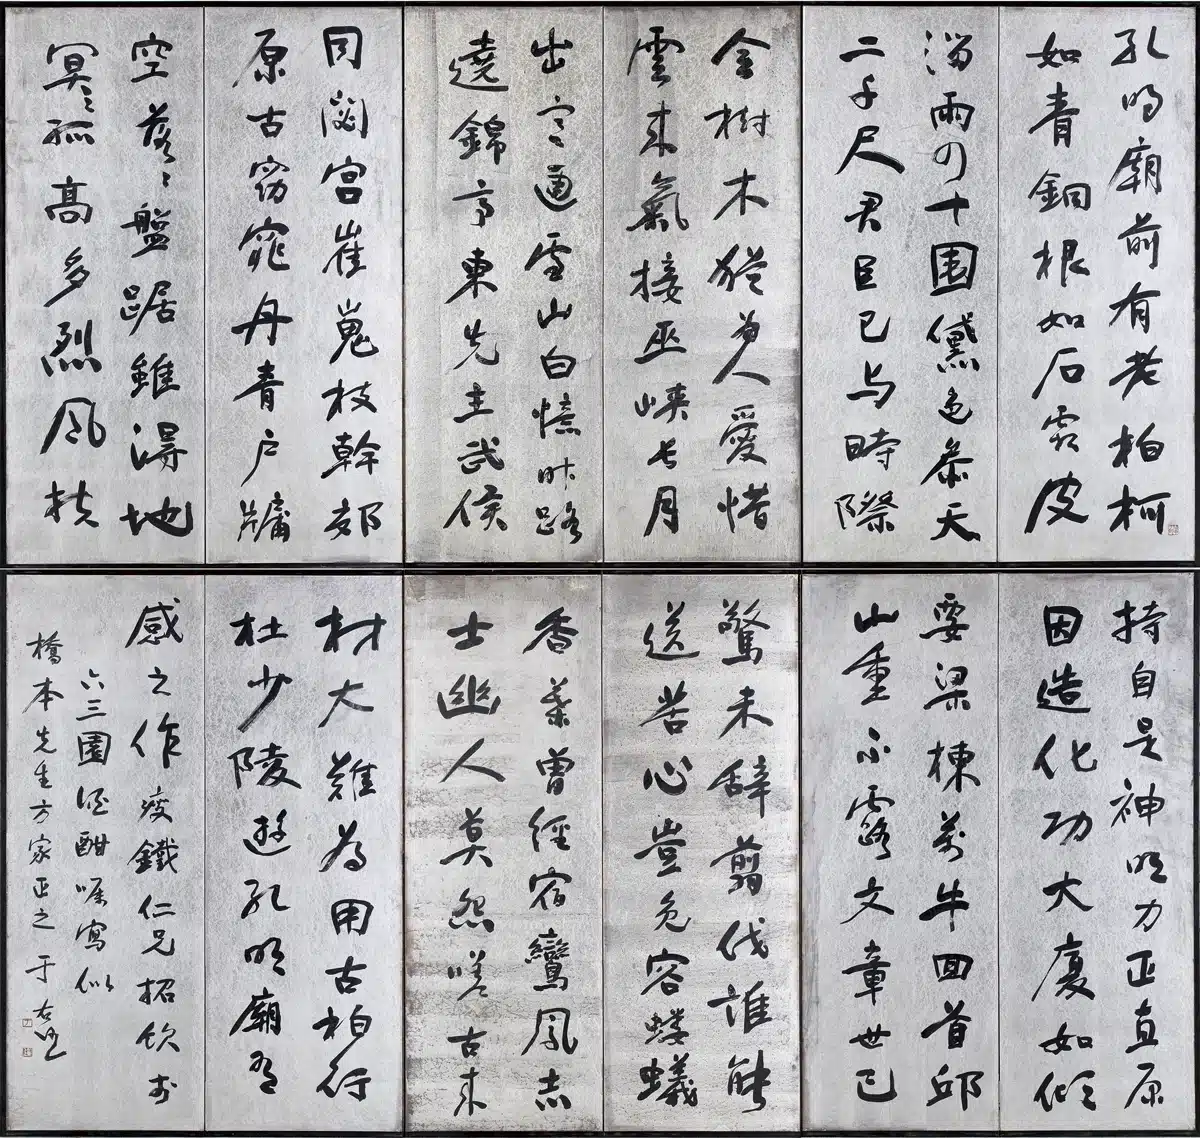 孔明廟前有老柏柯
如青銅根如石霜皮
溜雨四十围黛色參天
二千尺君臣已与時際
會樹木猶為人愛惜
雲來氣接巫峽長月
出寒通雪山白憶昨路
遶錦亭東先主武侯
同閟宮崔嵬枝幹郊
原古窈窕丹青户牖
空落〻盤踞雖得地
冥〻孤高多烈風扶
持自是神明力正直原
因造化功大廈如傾
要梁棟萬牛回首邱
山重不露文章世已
驚未辭翦伐誰能
送苦心豈免容螻蟻
香葉曾經宿鸞鳳志
士幽人莫怨嗟古來
材大難為用古柏行
杜少陵遊孔明廟有
感之作 瘦鐵仁兄招飲於
六三園酒酣嘱寫似
橋本先生方家正之 于右任